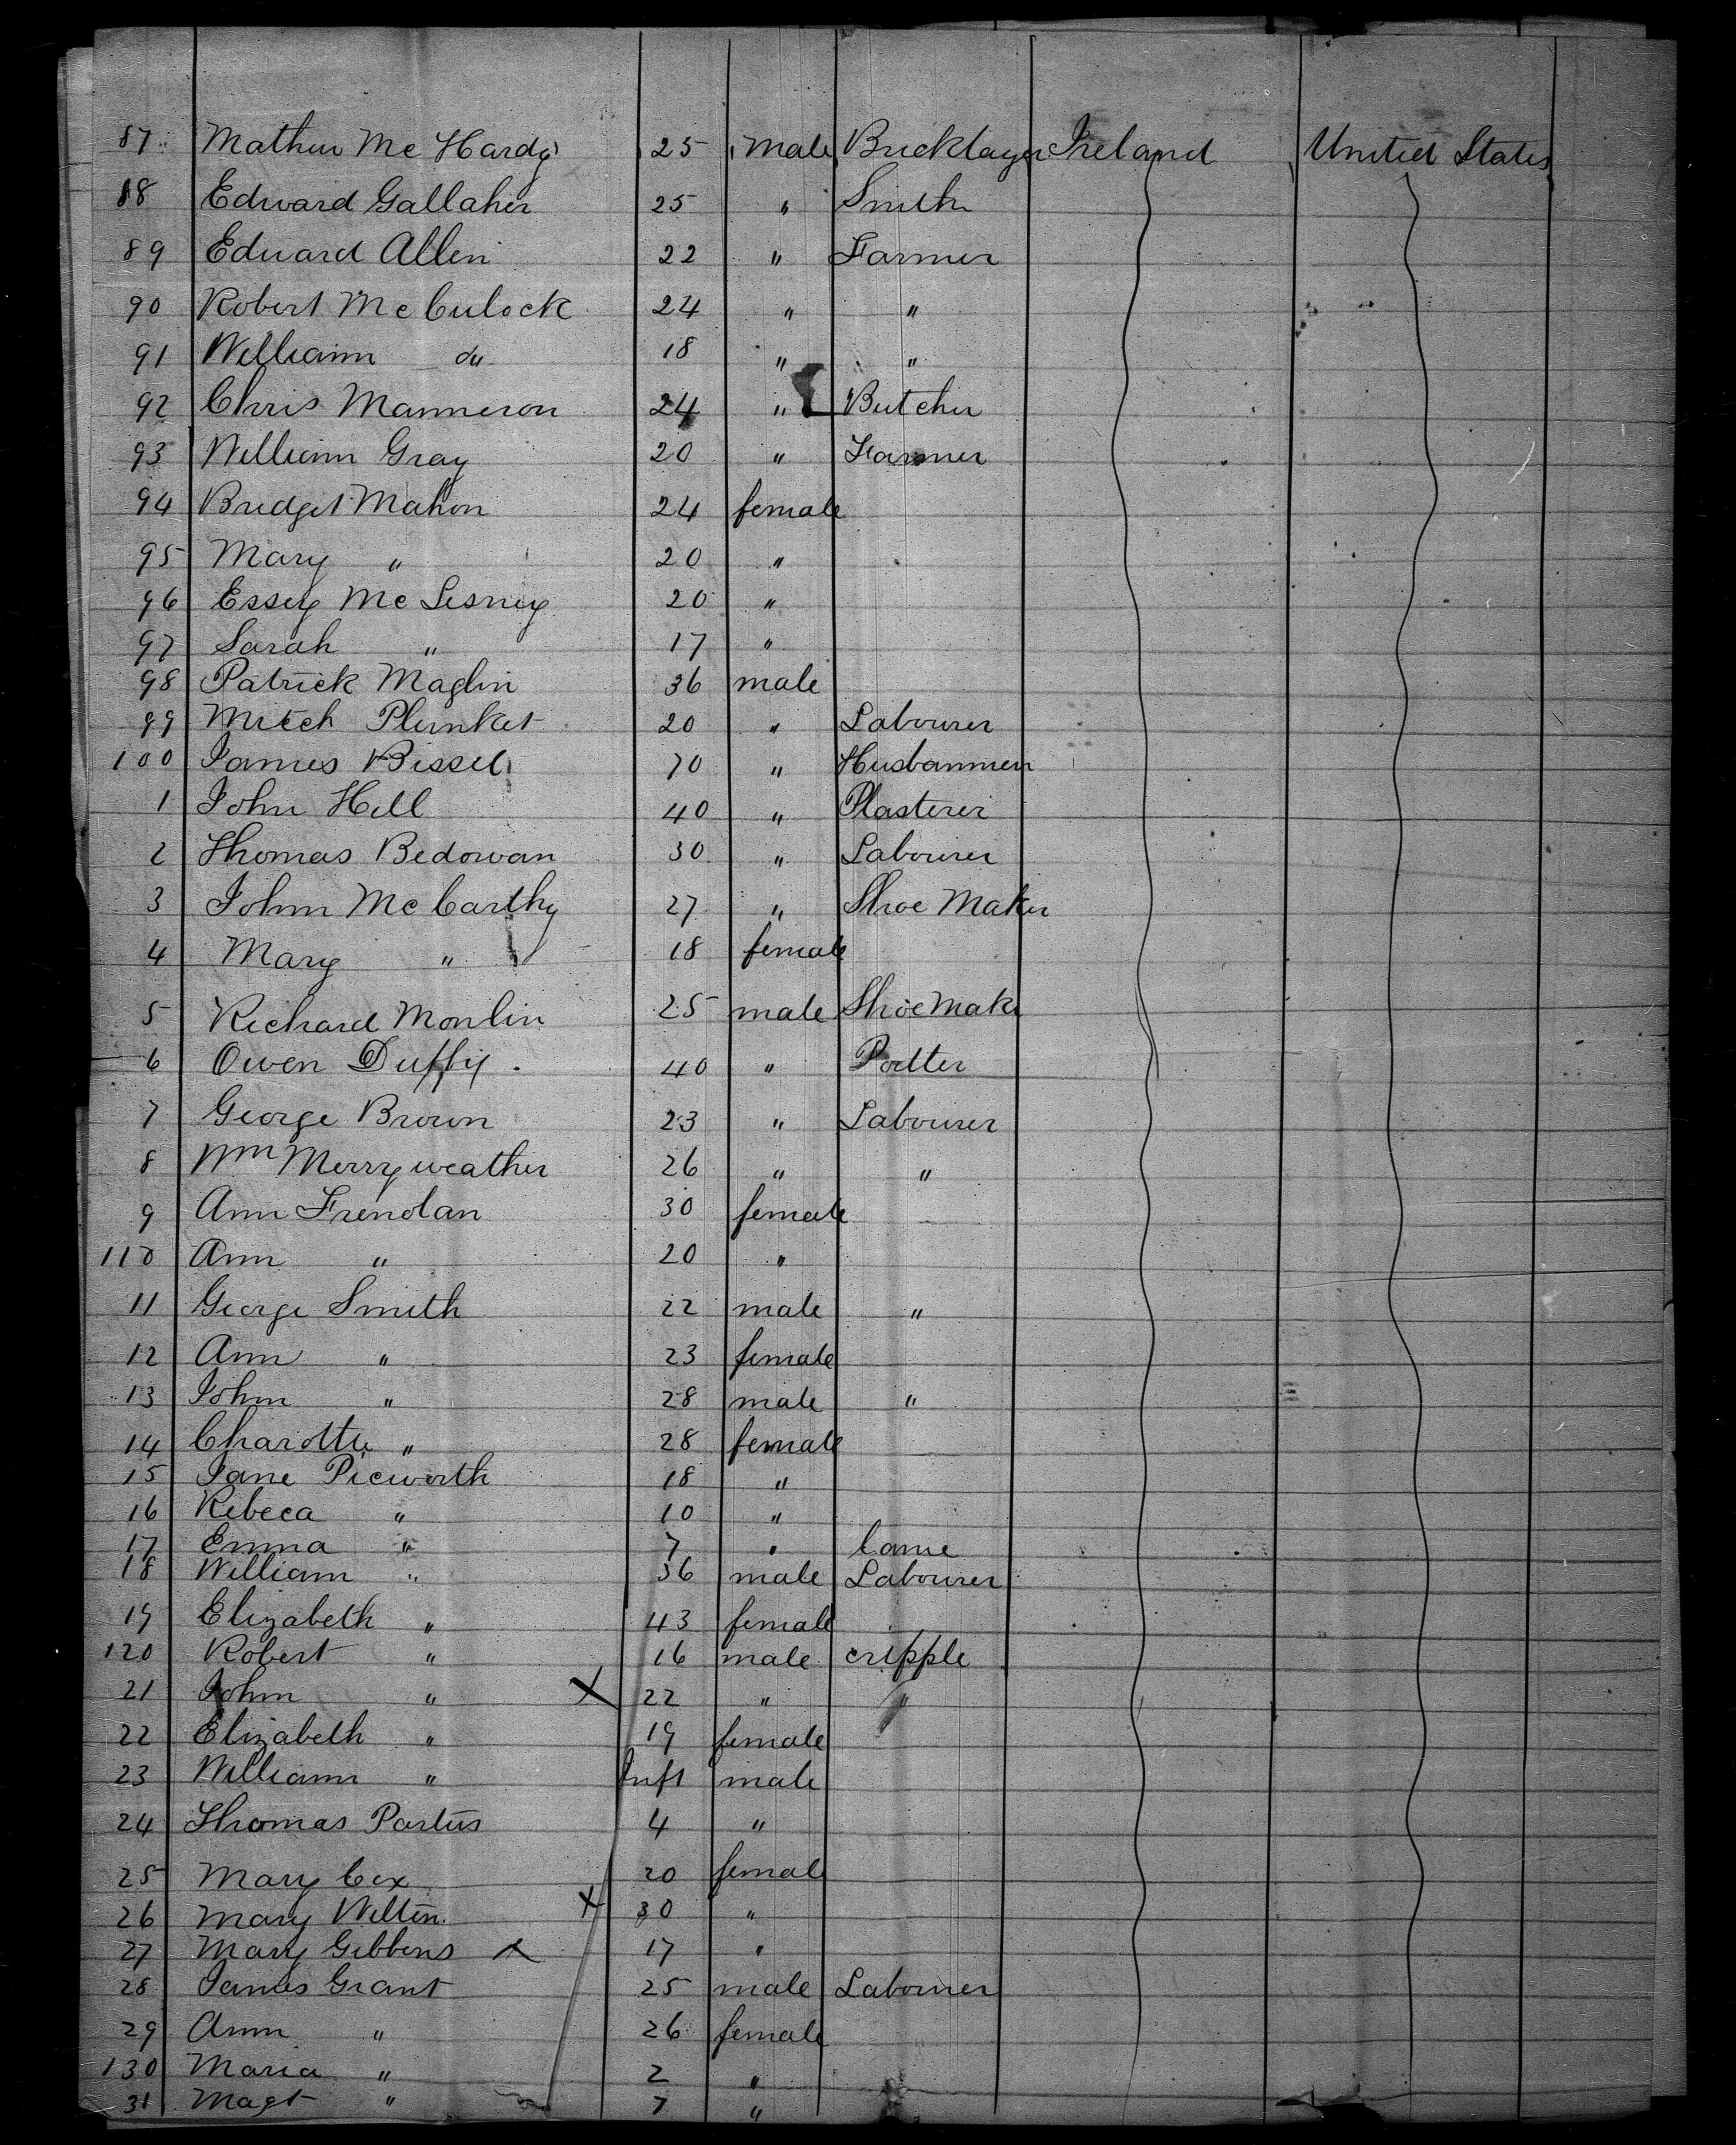 87 Mathew Mc Hardy 25 Male Bricklayer Ireland United States
88 Edward Gallaher 25 " Smith
89 Edward Allen 22 " Farmer
90 Robert Mc Culock 24 " "
91 William do 18 " "
92 Chris Manneron 24 " Butcher
93 William Gray 20 " Farmer
94 Bridget Mahon 24 female
95 Mary " 20 "
96 Essey Mc Lesney 20 "
97 Sarah " 17 "
98 Patrick Maglin 36 male
99 Mitch Plunket 20 " Labourer
100 James Bissel 70 " Husbanmen
1 John Hill 40 " Plasterer
2 Thomas Bedowan 30 " Labourer
3 John Mc Carthy 27 " Shoe Maker
4 Mary " 18 female
5 Richard Monlin 25 male Shoe Make
6 Owen Duffy 40 " Potter
7 George Brown 23 " Labourer
8 Wm Merryweather 26 " "
9 Ann Frendlan 30 female
110 Ann " 20 "
11 George Smith 22 male "
12 Ann " 23 female
13 John " 28 male "
14 Charotte " 28 female
15 Jane Picworth 18 "
16 Rebeca " 10 "
17 Emma " 7 " lame
18 William " 36 male Labourer
19 Elizabeth " 43 female
120 Robert " 16 male cripple
21 John " X 22 " "
22 Elizabeth " 19 female
23 William " Inft male
24 Thomas Partus 4 "
25 Mary Cox 20 female
26 Mary Wilten X 30 "
27 Mary Gibbens X 17 "
28 James Grant 25 male Labourer
29 Ann " 26 female
130 Maria " 2 "
31 Magt " 7 "